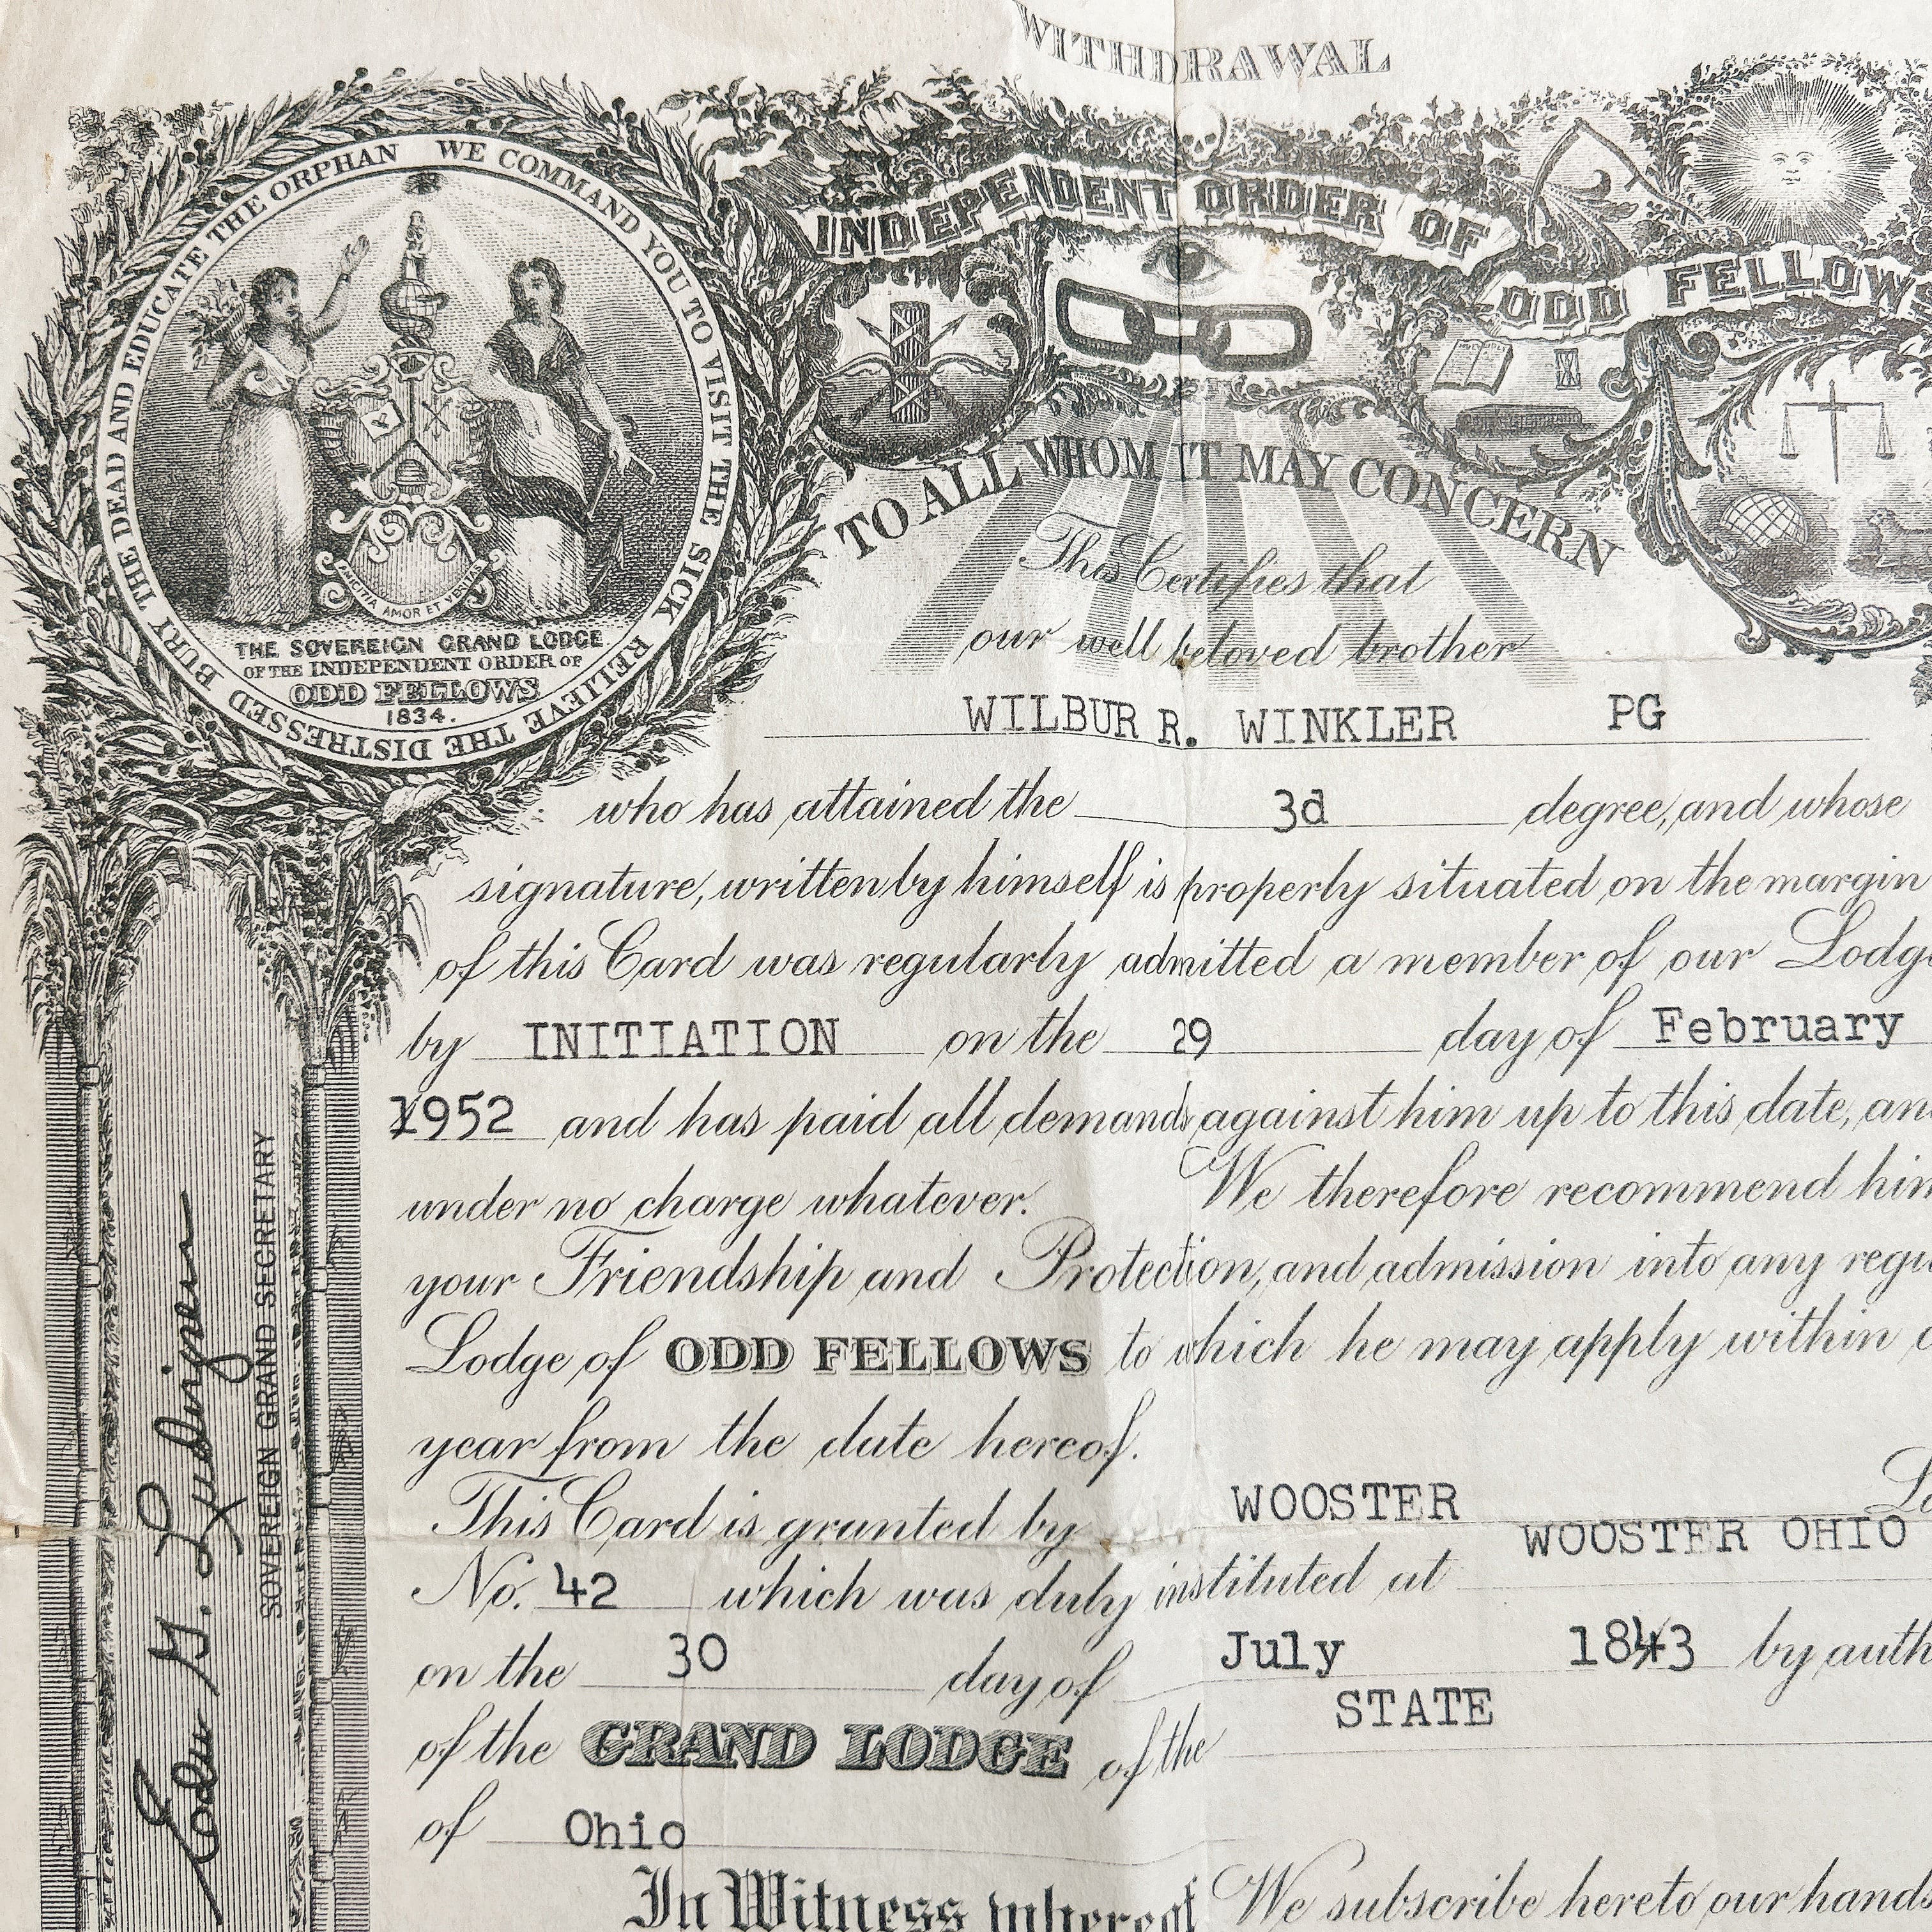 WITHDRAWAL
INDEPENDENT ORDER OF
ODD FELLOWS
WE COMMAND YOU TO VISIT THE SICK RELIEVE THE DISTRESSED BURY THE DEAD AND EDUCATE THE ORPHAN
AMICITIA AMOR ET VERITAS
THE SOVEREIGN GRAND LODGE
OF THE INDEPENDENT ORDER OF
ODD FELLOWS
1834.
TO ALL WHOM IT MAY CONCERN
This Certifies that
our well beloved brother
WILBUR R. WINKLER PG
who has attained the 3d degree, and whose
signature, written by himself is properly situated on the margin
of this Card was regularly admitted a member of our Lodge
by INITIATION on the 29 day of February
1952 and has paid all demands against him up to this date, and
under no charge whatever. We therefore recommend him
your Friendship and Protection, and admission into any regu
Lodge of ODD FELLOWS to which he may apply within
year from the date hereof.
This Card is granted by WOOSTER
No. 42 which was duly instituted at WOOSTER OHIO
on the 30 day of July 1843 by auth
of the GRAND LODGE of the STATE
of Ohio
In Witness whereof We subscribe hereto our hands
SOVEREIGN GRAND SECRETARY